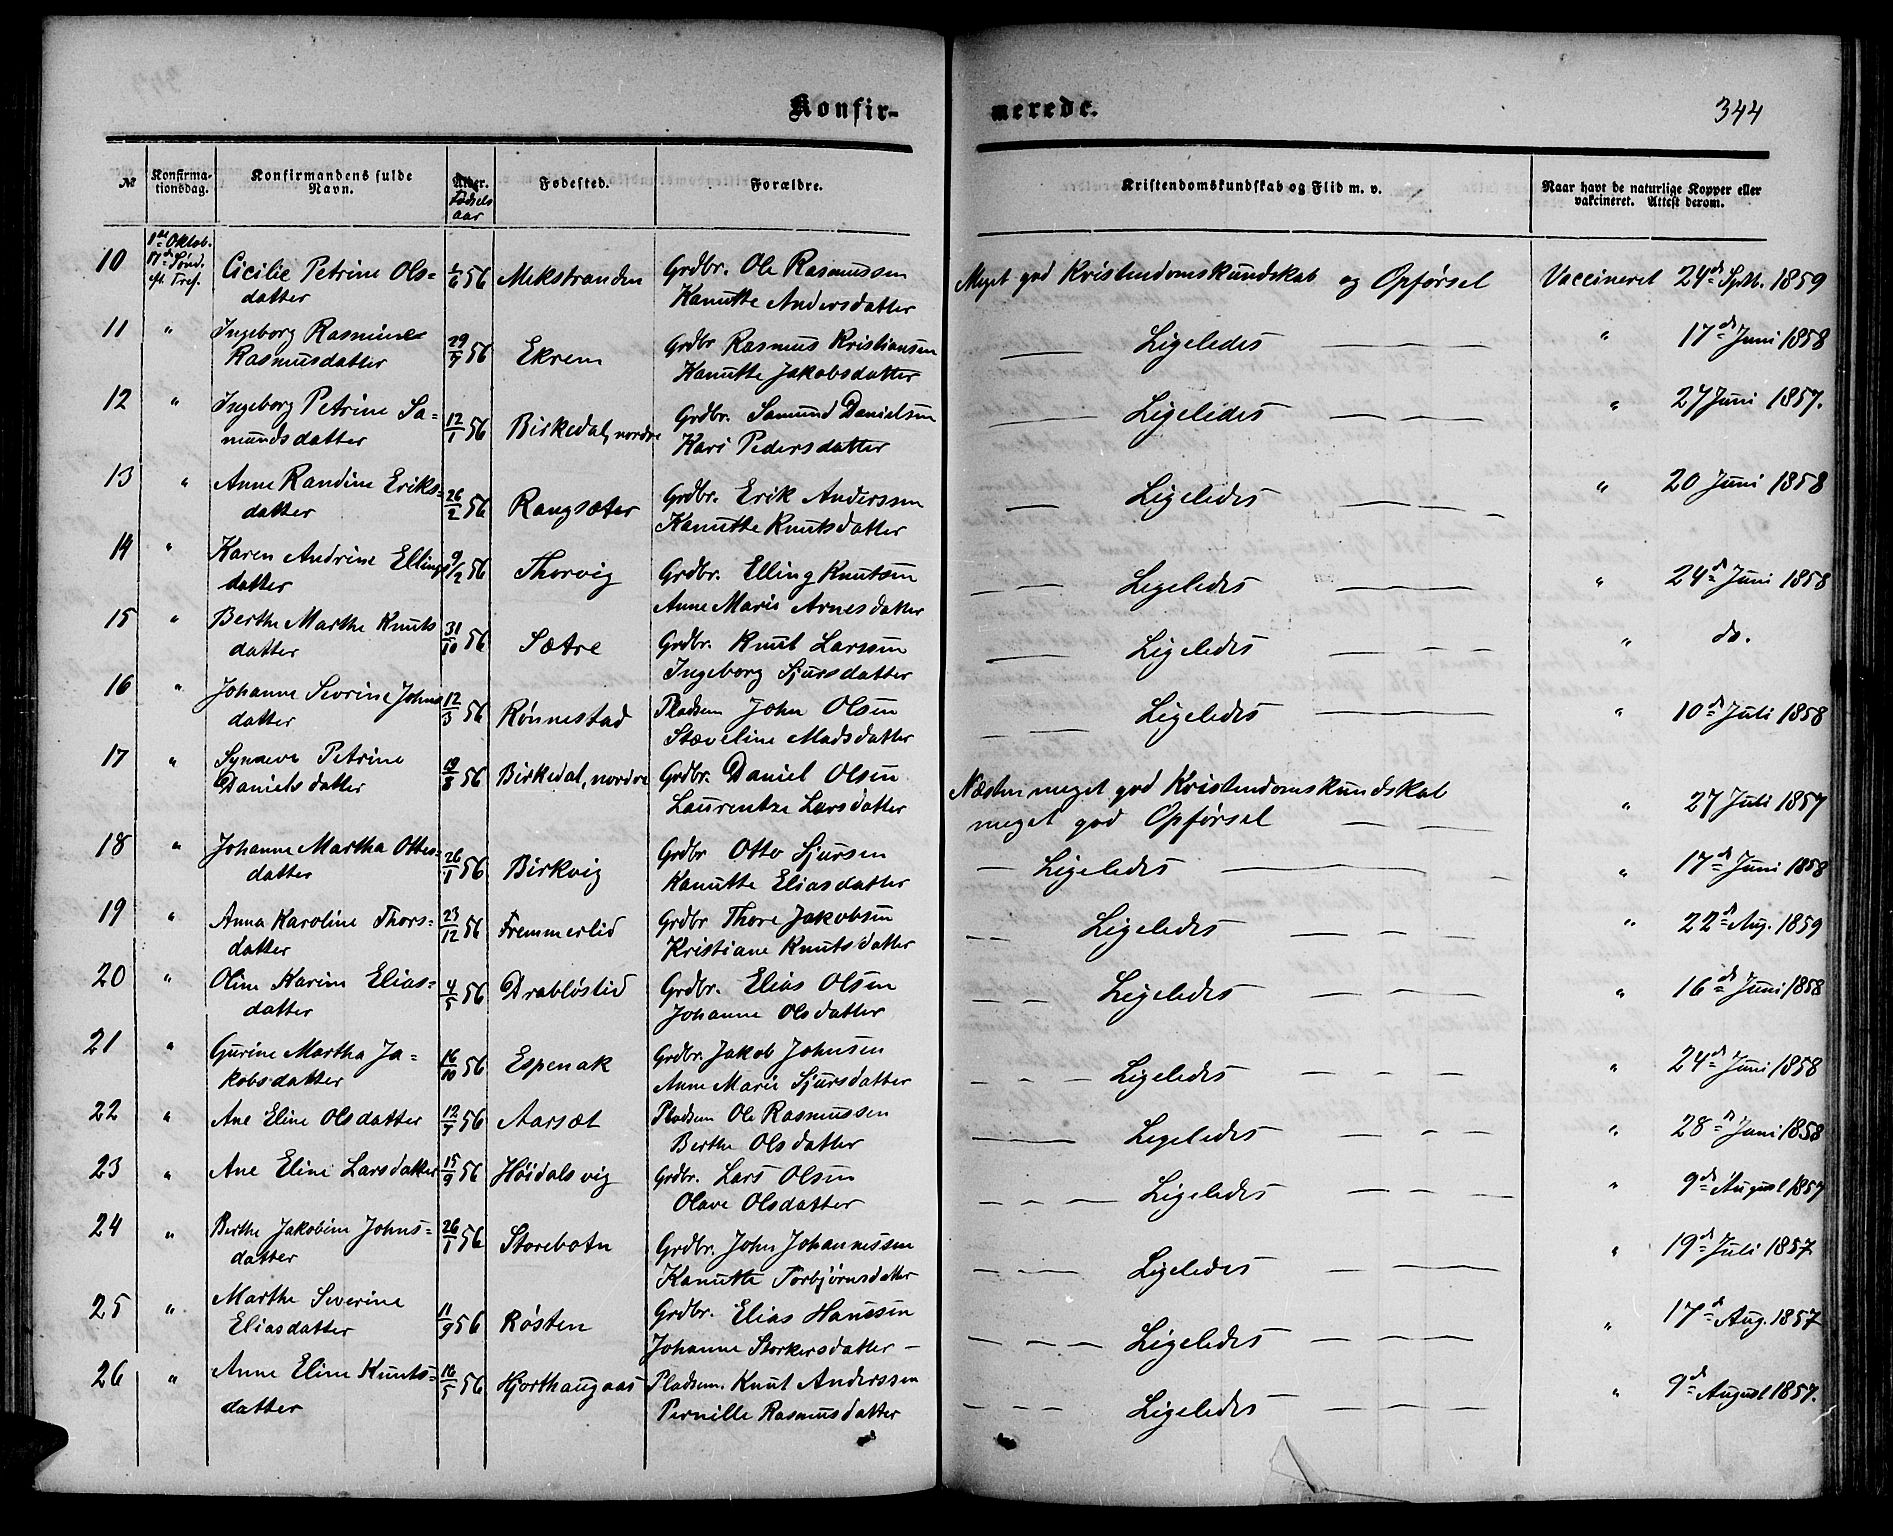 Konfir-
merede.
344
№ Konfirmationsdag. Konfirmandens fulde Navn. Alder. Fødsels aar Fødested. Forældre. Kristendomskundskab og Flid m. v. Naar havt de naturlige Kopper eller vakcineret. Attest derom.
1ste Oktob. 17de Sønd. ft. Tref.
10 Cicilie Petrine Ols= 56 Mekstranden Grdbr. Ole Rasmussen Meget god Kristendomskundskab og Opførsel Vaccineret 24de Septb. 1859
datter Kanutte Andersdatter
11 " Ingeborg Rasmine 29/7 56 Ekrem Grdbr Rasmus Kristiansen — Ligeledes — " 17de Juni 1858
Rasmusdatter Kanutte Jakobsdatter
12 " Ingeborg Petrine Sa= 12/1 56 Birkedal, nordre Grdbr. Samund Danielsen — Ligeledes — " 27 Juni 1857.
mundsdatter Kari Pedersdatter
13 " Anne Randine Eriks= 26/2 56 Rangsæter Grdbr. Erik Anderssen — Ligeledes — " 20 Juni 1858
datter Kanutte Knutsdatter
14 " Karen Andrine Ellings 9/2 56 Thorvig Grdbr. Elling Knutsen — Ligeledes — " 24de Juni 1858
datter Anne Marie Arnesdatter
15 " Berthe Marthe Knuts 31/10 56 Sætre Grdbr. Knut Larssen — Ligeledes — " do.
datter Ingeborg Sjursdatter
16 " Johanne Sevrine Johns 12/3 56 Rønnestad Pladsem John Olsen — Ligeledes — " 10de Juli 1858
datter Støveline Madsdatter
17 " Synneve Petrine 19/8 56 Birkedal, nordre Grdbr. Daniel Olsen Næsten meget god Kristendomskundskab " 27 Juli 1857
Danielsdatter Laurentze Larsdatter meget god Opførsel —
18 " Johanne Martha Ottes= 26/1 56 Birkvig Grdbr Otto Sjursen — Ligeledes — " 17de Juni 1858
datter Kanutte Eliasdatter
19 " Anna Karoline Thors= 23/12 56 Fremmerlid Grdbr Thore Jakobsen — Ligeledes — " 22de Aug. 1859
datter Kristiane Knutsdatter
20 " Oline Karine Elias= 56 Drabløslid Grdbr. Elias Olsen — Ligeledes — " 16de Juni 1858
datter Johanne Olsdatter
21 " Gurine Martha Ja= 16/10 56 Espenak Grdbr. Jakob Johnsen — Ligeledes — " 24de Juni 1858
kobsdatter Anne Marie Sjursdatter
22 " Ane Eline Olsdatter 12/7 56 Aarsæt Pladsem Ole Rasmussen — Ligeledes — " 28de Juni 1858
Berthe Olsdatter
23 " Ane Eline Larsdatter 15/9 56 Høidalsvig Grdbr. Lars Olsen — Ligeledes — " 9de August 1857
Olave Olsdatter
24 " Berthe Jakobine Johns= 26/1 56 Storebotn Grdbr. John Johannessen — Ligeledes — " 19de Juli 1857
datter Kanutte Torbjørnsdatter
25 " Marthe Severine 11/9 56 Røsten Grdbr. Elias Hanssen — Ligeledes — " 17de Aug. 1857
Eliasdatter Johanne Storkersdatter —
26 " Anne Eline Knuts= 16/5 56 Hjorthaugaas Pladsem. Knut Anderssen — Ligeledes — " 9de August 1857.
datter Pernille Rasmusdatter